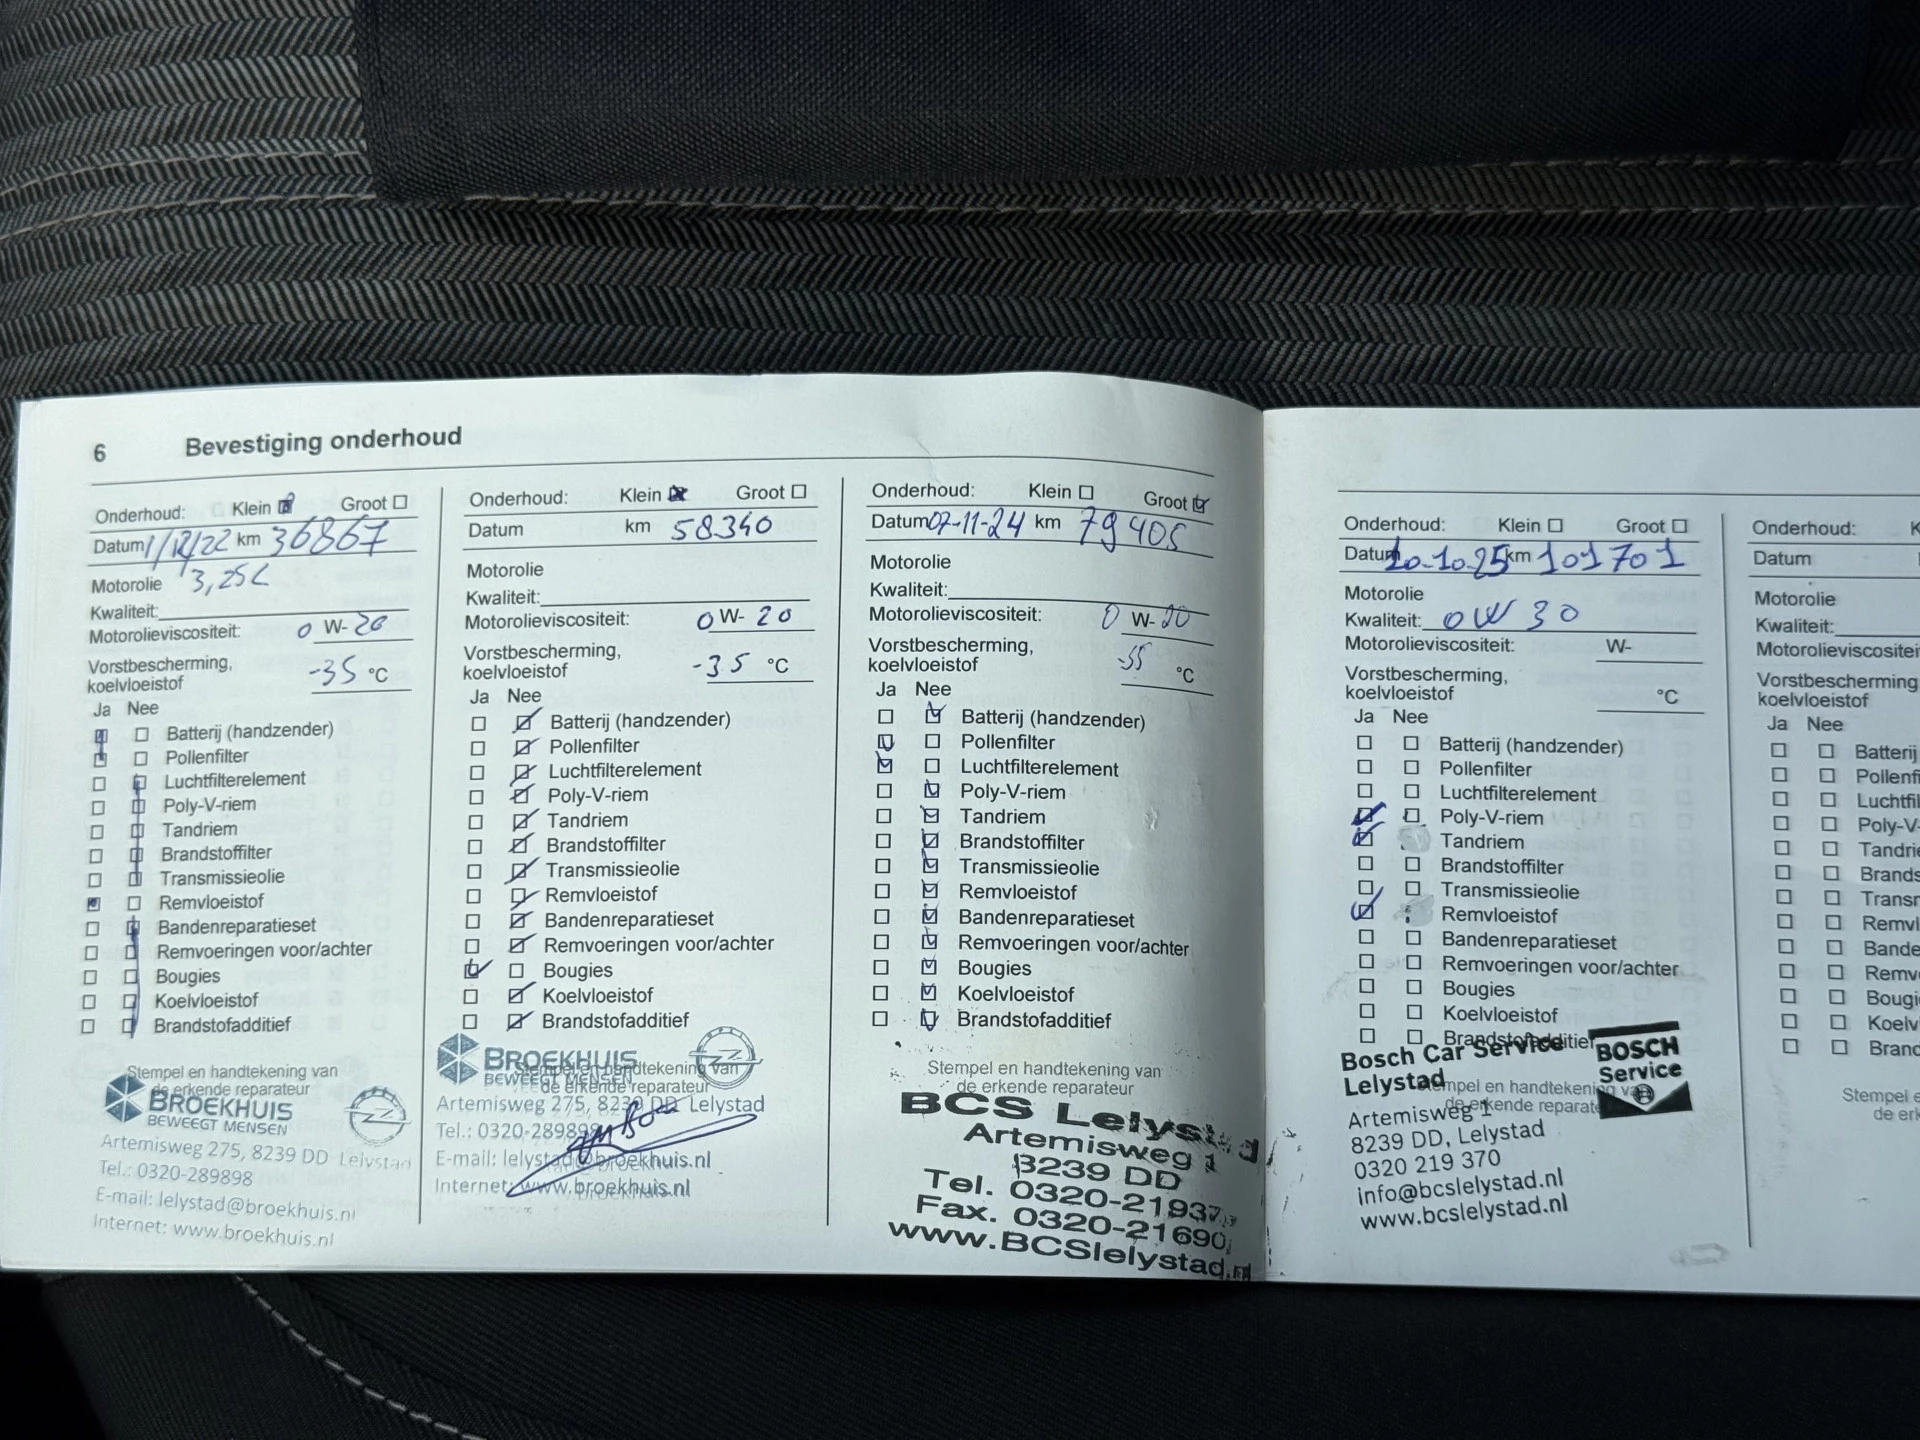 6 Bevestiging onderhoud
Onderhoud: Klein Groot
Datum 1/12/22 km 36867
Motorolie 3,25L
Kwaliteit:
Motorolieviscositeit: 0 W- 20
Vorstbescherming,
koelvloeistof -35 °C
Ja Nee
Batterij (handzender)
Pollenfilter
Luchtfilterelement
Poly-V-riem
Tandriem
Brandstoffilter
Transmissieolie
Remvloeistof
Bandenreparatieset
Remvoeringen voor/achter
Bougies
Koelvloeistof
Brandstofadditief
Stempel en handtekening van
de erkende reparateur
BROEKHUIS
BEWEEGT MENSEN
Artemisweg 275, 8239 DD Lelystad
Tel.: 0320-289898
E-mail: lelystad@broekhuis.nl
Internet: www.broekhuis.nl
Onderhoud: Klein Groot
Datum km 58340
Motorolie
Kwaliteit:
Motorolieviscositeit: 0 W- 20
Vorstbescherming,
koelvloeistof -35 °C
Ja Nee
Batterij (handzender)
Pollenfilter
Luchtfilterelement
Poly-V-riem
Tandriem
Brandstoffilter
Transmissieolie
Remvloeistof
Bandenreparatieset
Remvoeringen voor/achter
Bougies
Koelvloeistof
Brandstofadditief
Stempel en handtekening van
de erkende reparateur
BROEKHUIS
BEWEEGT MENSEN
Artemisweg 275, 8239 DD Lelystad
Tel.: 0320-289898
E-mail: lelystad@broekhuis.nl
Internet: www.broekhuis.nl
Onderhoud: Klein Groot
Datum 07-11-24 km 79405
Motorolie
Kwaliteit:
Motorolieviscositeit: 0 W- 20
Vorstbescherming,
koelvloeistof °C
Ja Nee
Batterij (handzender)
Pollenfilter
Luchtfilterelement
Poly-V-riem
Tandriem
Brandstoffilter
Transmissieolie
Remvloeistof
Bandenreparatieset
Remvoeringen voor/achter
Bougies
Koelvloeistof
Brandstofadditief
Stempel en handtekening van
de erkende reparateur
BCS Lelystad
Artemisweg 1
8239 DD
Tel. 0320-21937
Fax. 0320-21690
www.BCSlelystad.nl
Onderhoud: Klein Groot
Datum 20-10-25 km 101701
Motorolie
Kwaliteit: 0W 30
Motorolieviscositeit: W-
Vorstbescherming,
koelvloeistof °C
Ja Nee
Batterij (handzender)
Pollenfilter
Luchtfilterelement
Poly-V-riem
Tandriem
Brandstoffilter
Transmissieolie
Remvloeistof
Bandenreparatieset
Remvoeringen voor/achter
Bougies
Koelvloeistof
Brandstofadditief
Stempel en handtekening van
de erkende reparateur
Bosch Car Service
Lelystad
BOSCH
Service
Artemisweg 1
8239 DD, Lelystad
0320 219 370
info@bcslelystad.nl
www.bcslelystad.nl
Onderhoud: K
Datum
Motorolie
Kwaliteit:
Motorolieviscositei
Vorstbescherming
koelvloeistof
Ja Nee
Batterij
Pollenfi
Luchtfil
Poly-V-
Tandrie
Brands
Transr
Remvl
Bande
Remv
Bougi
Koelv
Brand
Stempel e
de erk